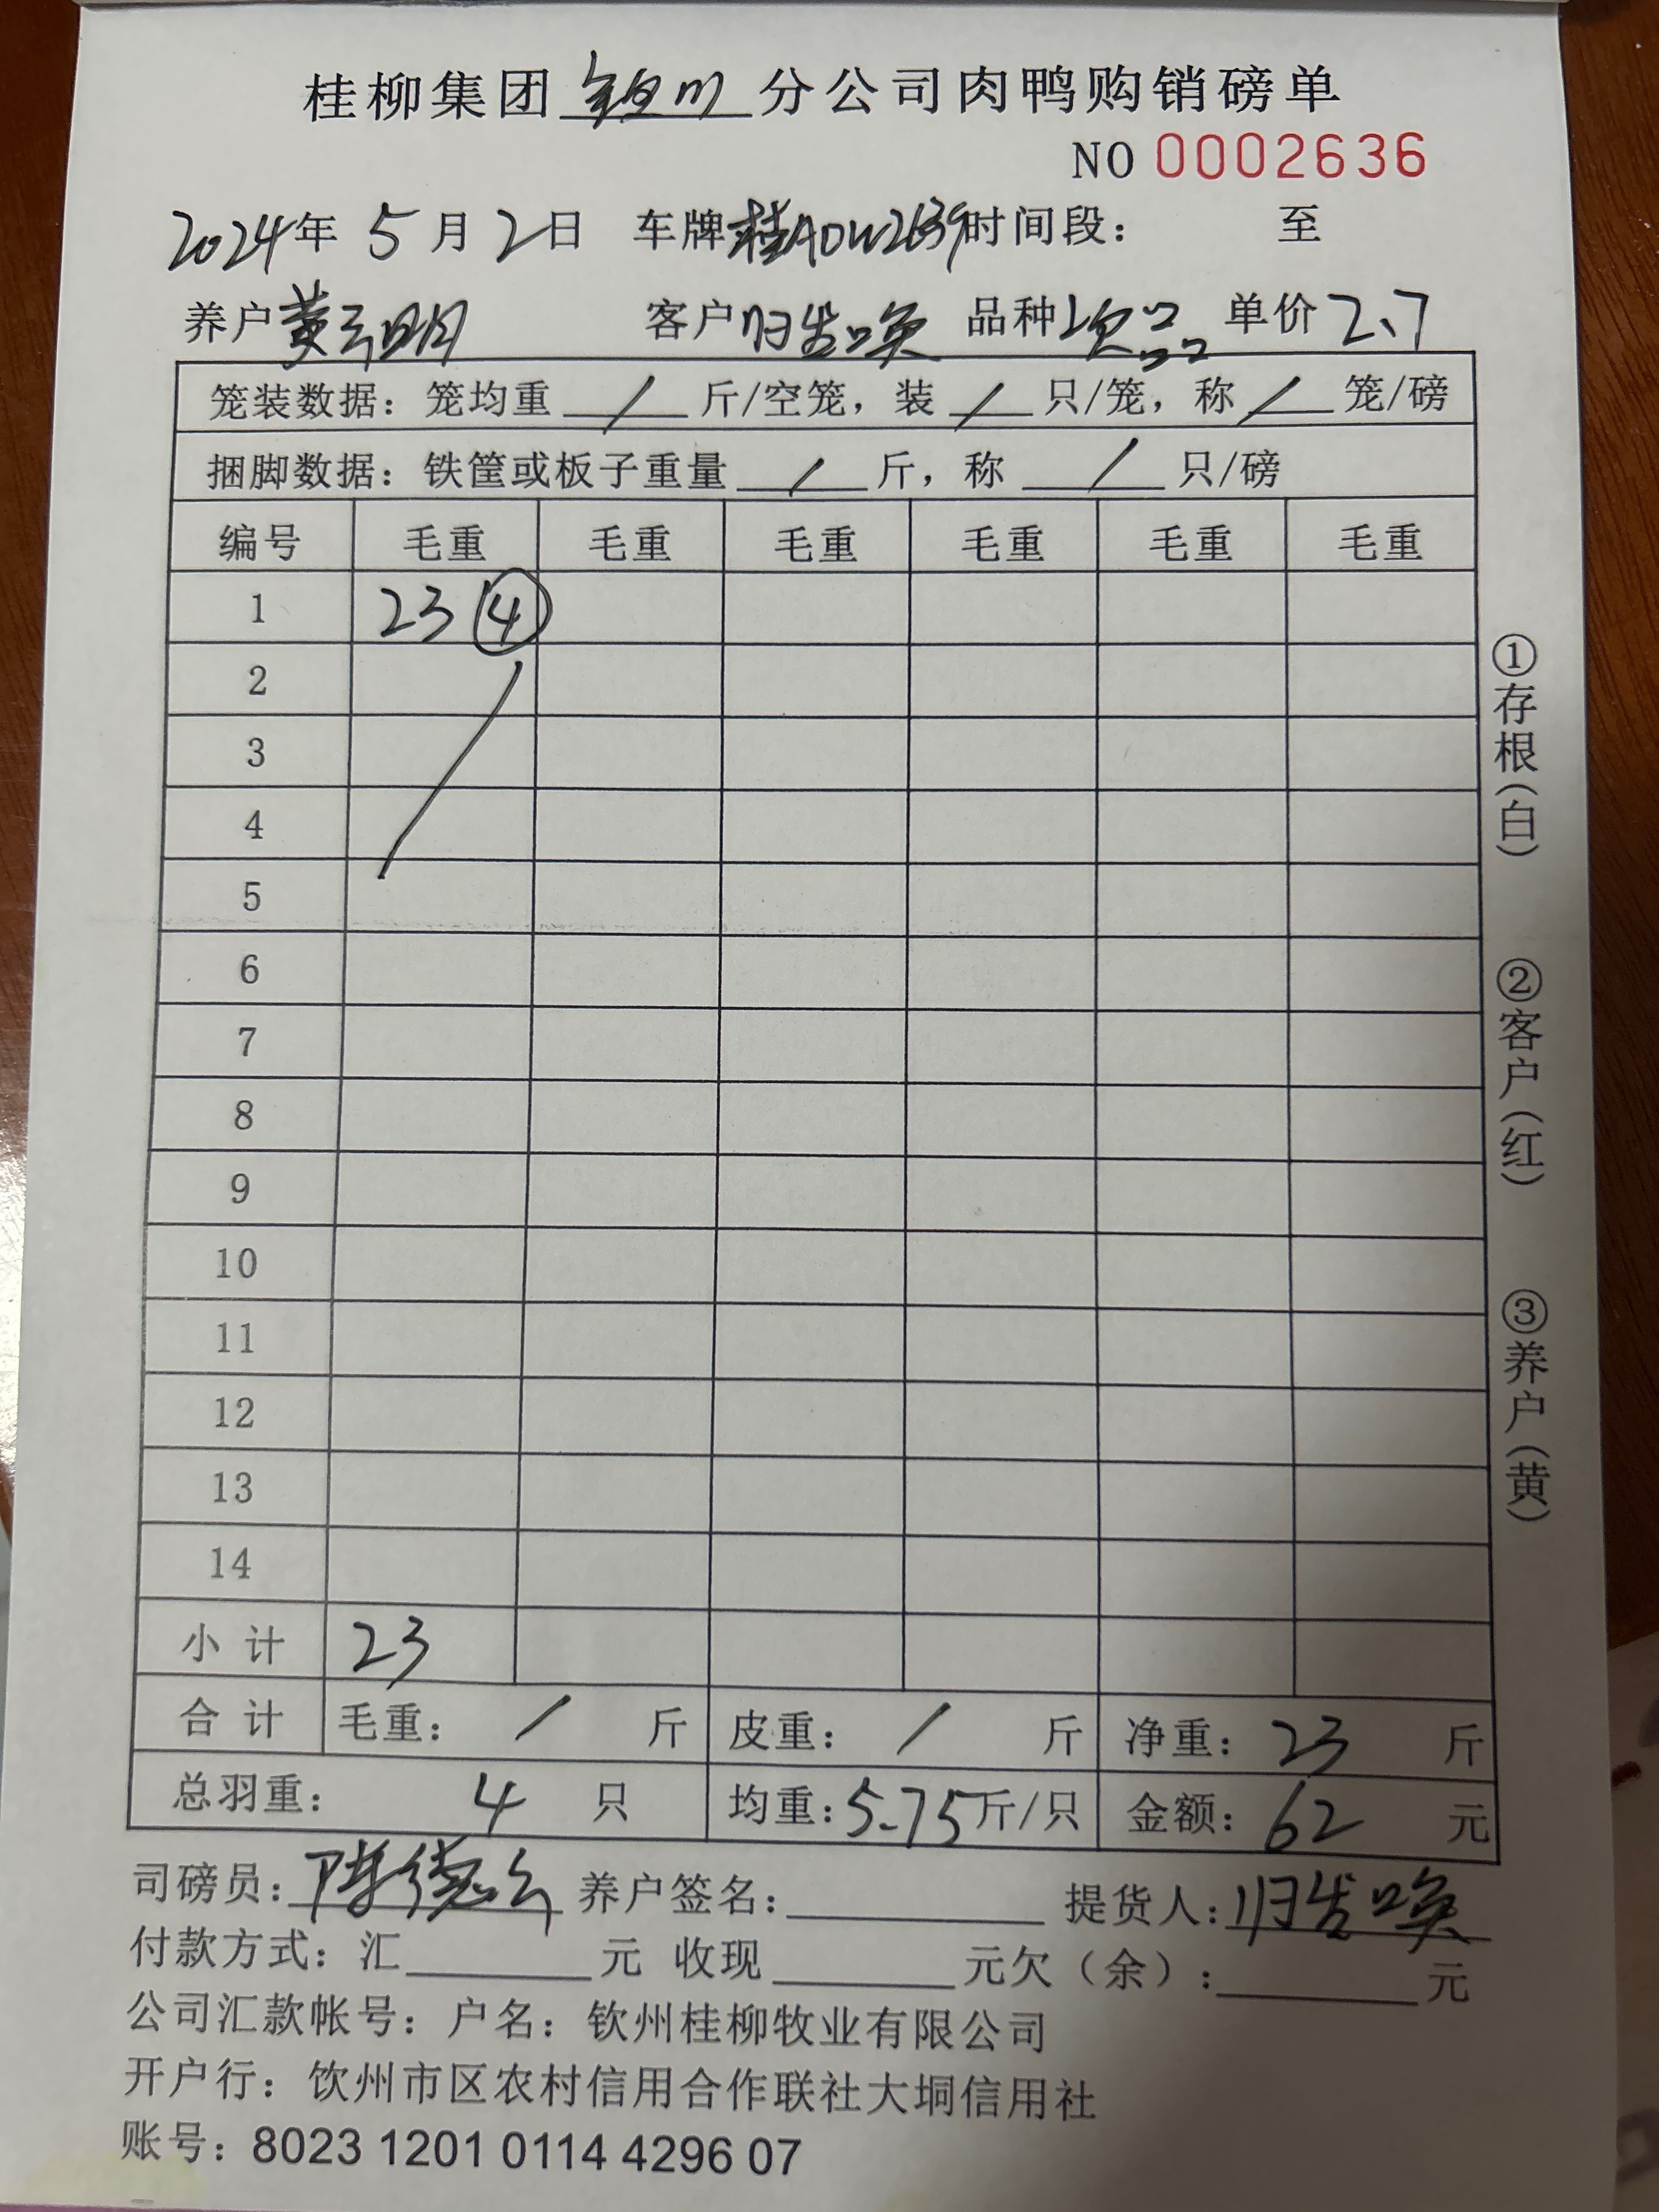 桂柳集团 分公司肉鸭购销磅单
NO 0002636
2024年 5月 2日 车牌桂A0W2639时间段： 至
养户黄云明 客户归发唤 品种次品 单价2.7
笼装数据：笼均重 / 斤/空笼，装 / 只/笼，称 / 笼/磅
捆脚数据：铁筐或板子重量 / 斤，称 / 只/磅
编号 毛重 毛重 毛重 毛重 毛重 毛重
1 23 ④
2
3
4
5
6
7
8
9
10
11
12
13
14
小 计 23
合 计 毛重： / 斤 皮重： / 斤 净重：23 斤
总羽重： 4 只 均重：5.75斤/只 金额：62 元
司磅员：陈德云 养户签名： 提货人：归发唤
付款方式：汇 元 收现 元欠（余）： 元
公司汇款帐号：户名：钦州桂柳牧业有限公司
开户行：饮州市区农村信用合作联社大垌信用社
账号：8023 1201 0114 4296 07
①存根（白） ②客户（红） ③养户（黄）